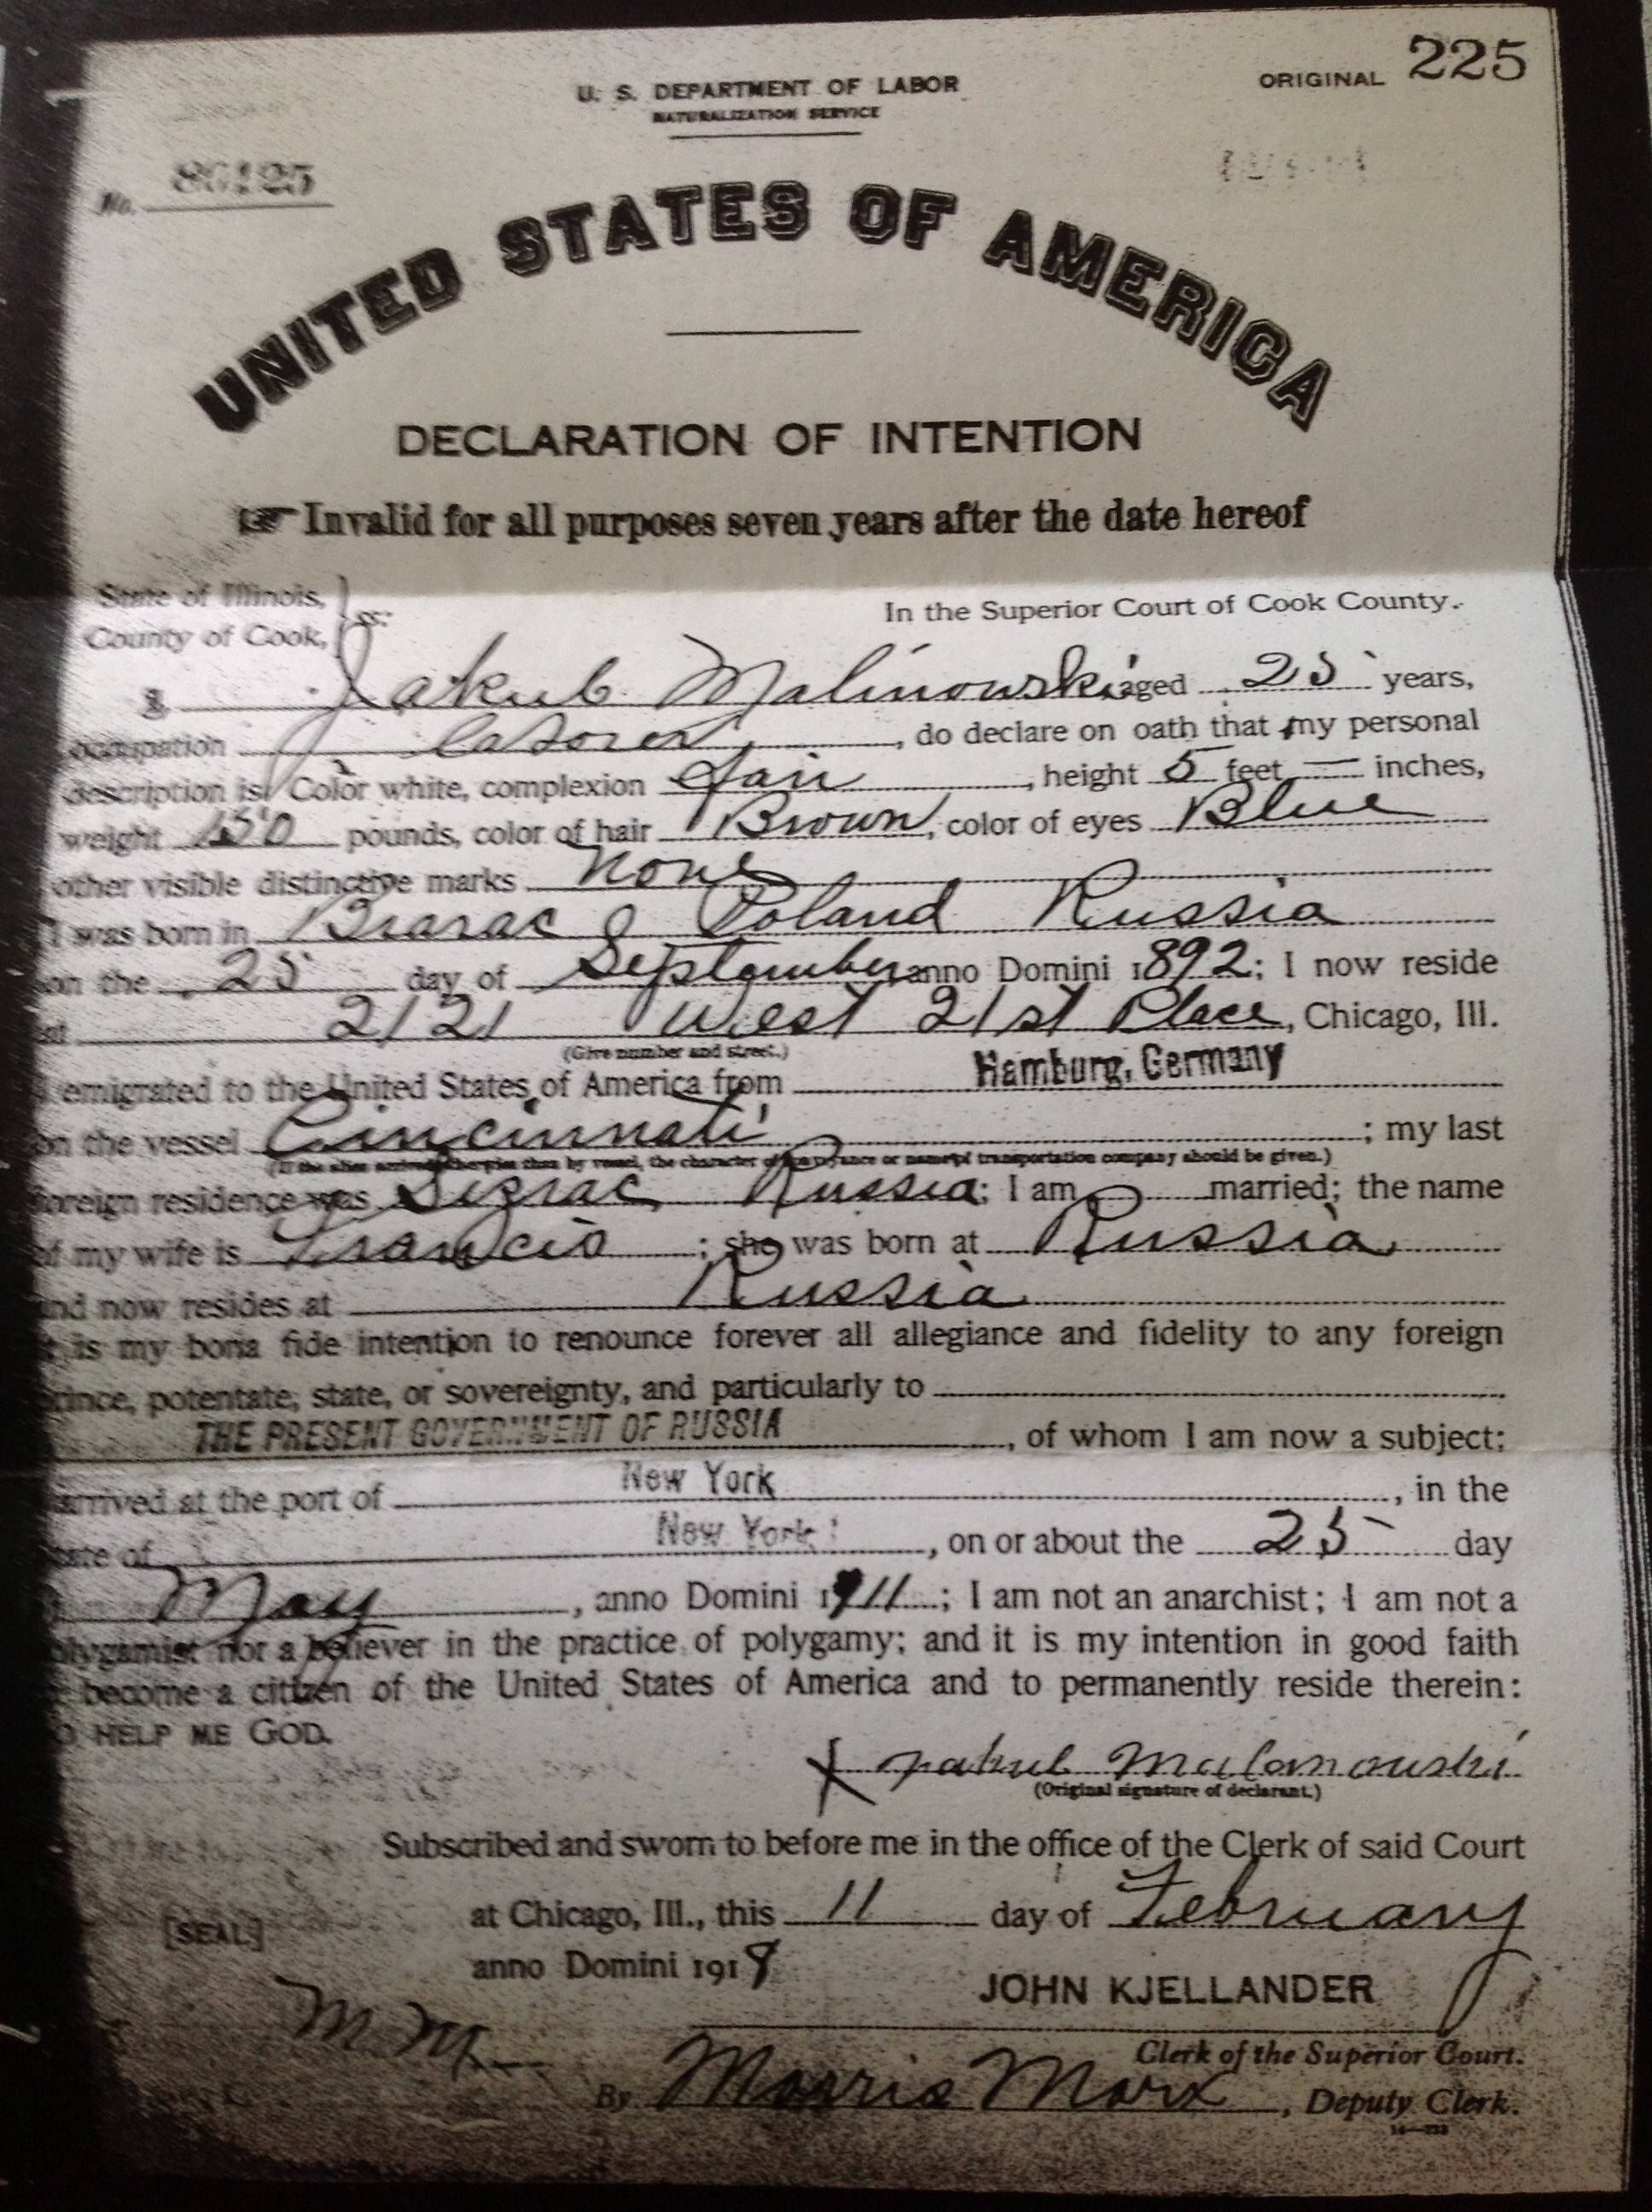 ORIGINAL 225
U. S. DEPARTMENT OF LABOR
NATURALIZATION SERVICE
No. 80125
UNITED STATES OF AMERICA
DECLARATION OF INTENTION
☞ Invalid for all purposes seven years after the date hereof
State of Illinois,
County of Cook, } ss:
In the Superior Court of Cook County.
I, Jakub Malinowski, aged 25 years,
occupation laborer, do declare on oath that my personal
description is: Color white, complexion Fair, height 5 feet — inches,
weight 150 pounds, color of hair Brown, color of eyes Blue
other visible distinctive marks None
I was born in Poland Russia
on the 25 day of September anno Domini 1892; I now reside
at 2121 West 21st Place, Chicago, Ill.
(Give number and street.)
I emigrated to the United States of America from Hamburg, Germany
on the vessel Cincinnati; my last
(If the alien arrived otherwise than by vessel, the character of conveyance or name of transportation company should be given.)
foreign residence was Russia; I am married; the name
of my wife is; she was born at Russia
and now resides at Russia
It is my bona fide intention to renounce forever all allegiance and fidelity to any foreign
prince, potentate, state, or sovereignty, and particularly to
THE PRESENT GOVERNMENT OF RUSSIA, of whom I am now a subject;
arrived at the port of New York, in the
State of New York, on or about the 25 day
May, anno Domini 1911; I am not an anarchist; I am not a
polygamist nor a believer in the practice of polygamy; and it is my intention in good faith
become a citizen of the United States of America and to permanently reside therein:
SO HELP ME GOD.
X Jakub Malanouski
(Original signature of declarant.)
Subscribed and sworn to before me in the office of the Clerk of said Court
[SEAL] at Chicago, Ill., this 11 day of February
anno Domini 1918
JOHN KJELLANDER
M. M.
Clerk of the Superior Court.
By Morris Marx, Deputy Clerk.